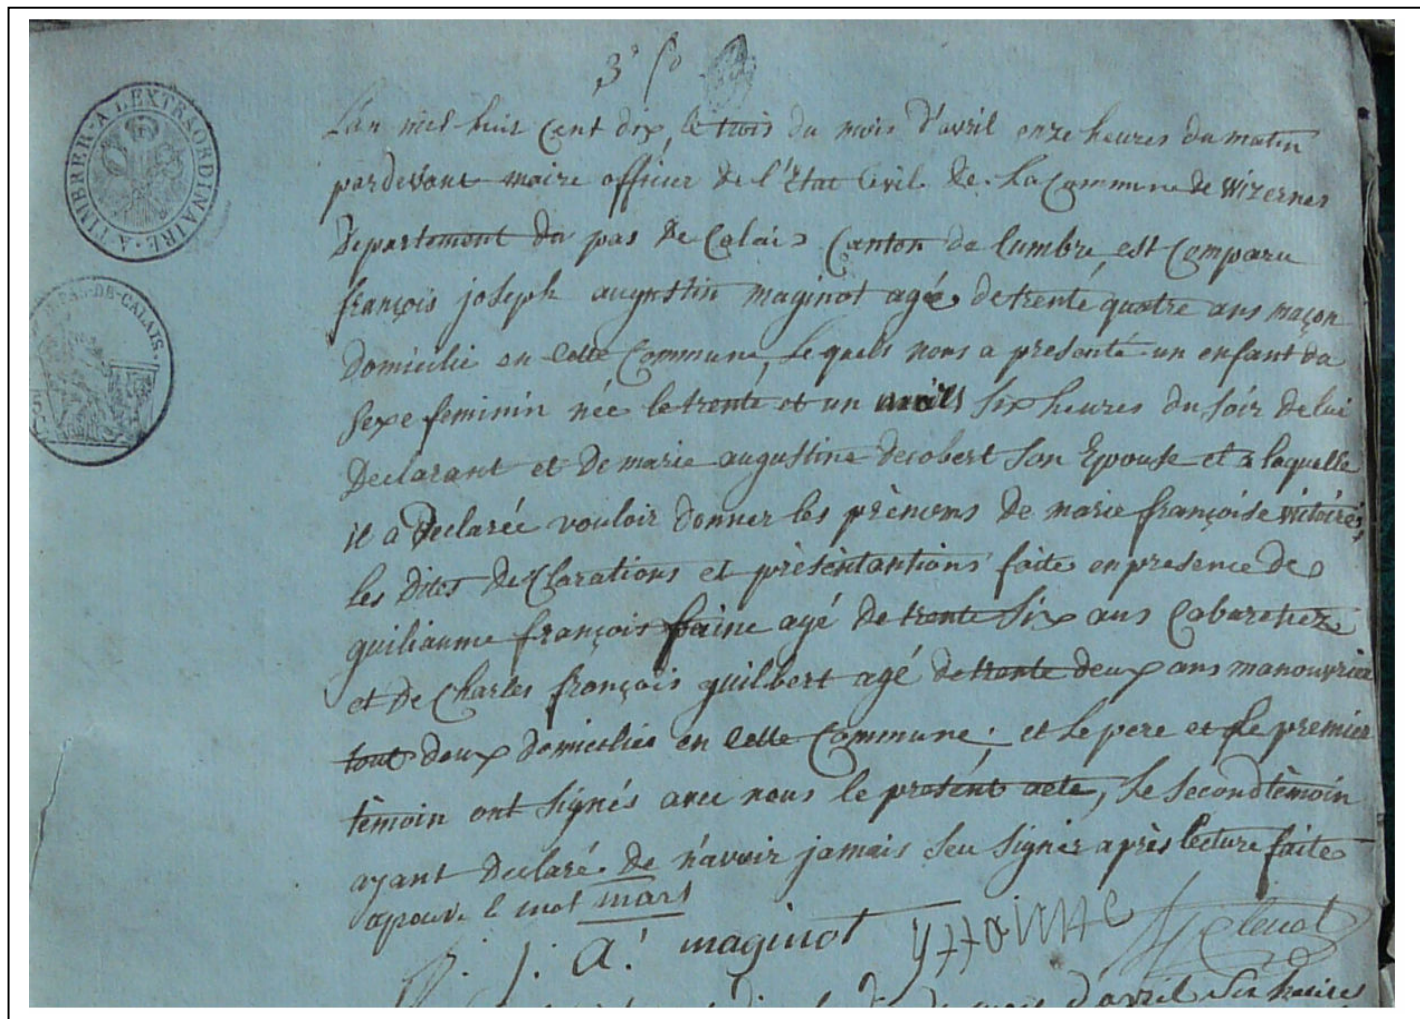 3e fo
A TIMBRER A L'EXTRAORDINAIRE
PAS-DE-CALAIS.
L'an mil huit cent dix, le trois du mois d'avril onze heures du matin
pardevant maire officier de l'Etat Civil de La Commune de Wizernes
Departement du pas de Calais Canton de Lumbre est Comparu
françois joseph augustin maginot agé de trente quatre ans maçon
domicilié en cette Commune, Le quels nous a presenté un enfant du
Sexe feminin née le trente et un Six heures du Soir de lui
Declarant et de marie augustine decobert Son Epouse et a laquelle
il a declarée vouloir donner les prènoms de marie françoise
les dites declarations et prèsèntantions faite en presence de
guiliaume françois faine agé de trente Six ans Cabaretier
et de Charles françois guilbert agé de trente deux ans manouvrier
tout deux domicilies en Cette Commune; et Le pere et Le premier
tèmoin ont Signés avec nous le present acte, Le Second tèmoin
ayant Declaré de n'avoir jamais Seu Signer après lecture faite
aprouve le mot mars
f. j. A. maginot
d'avril Six heures